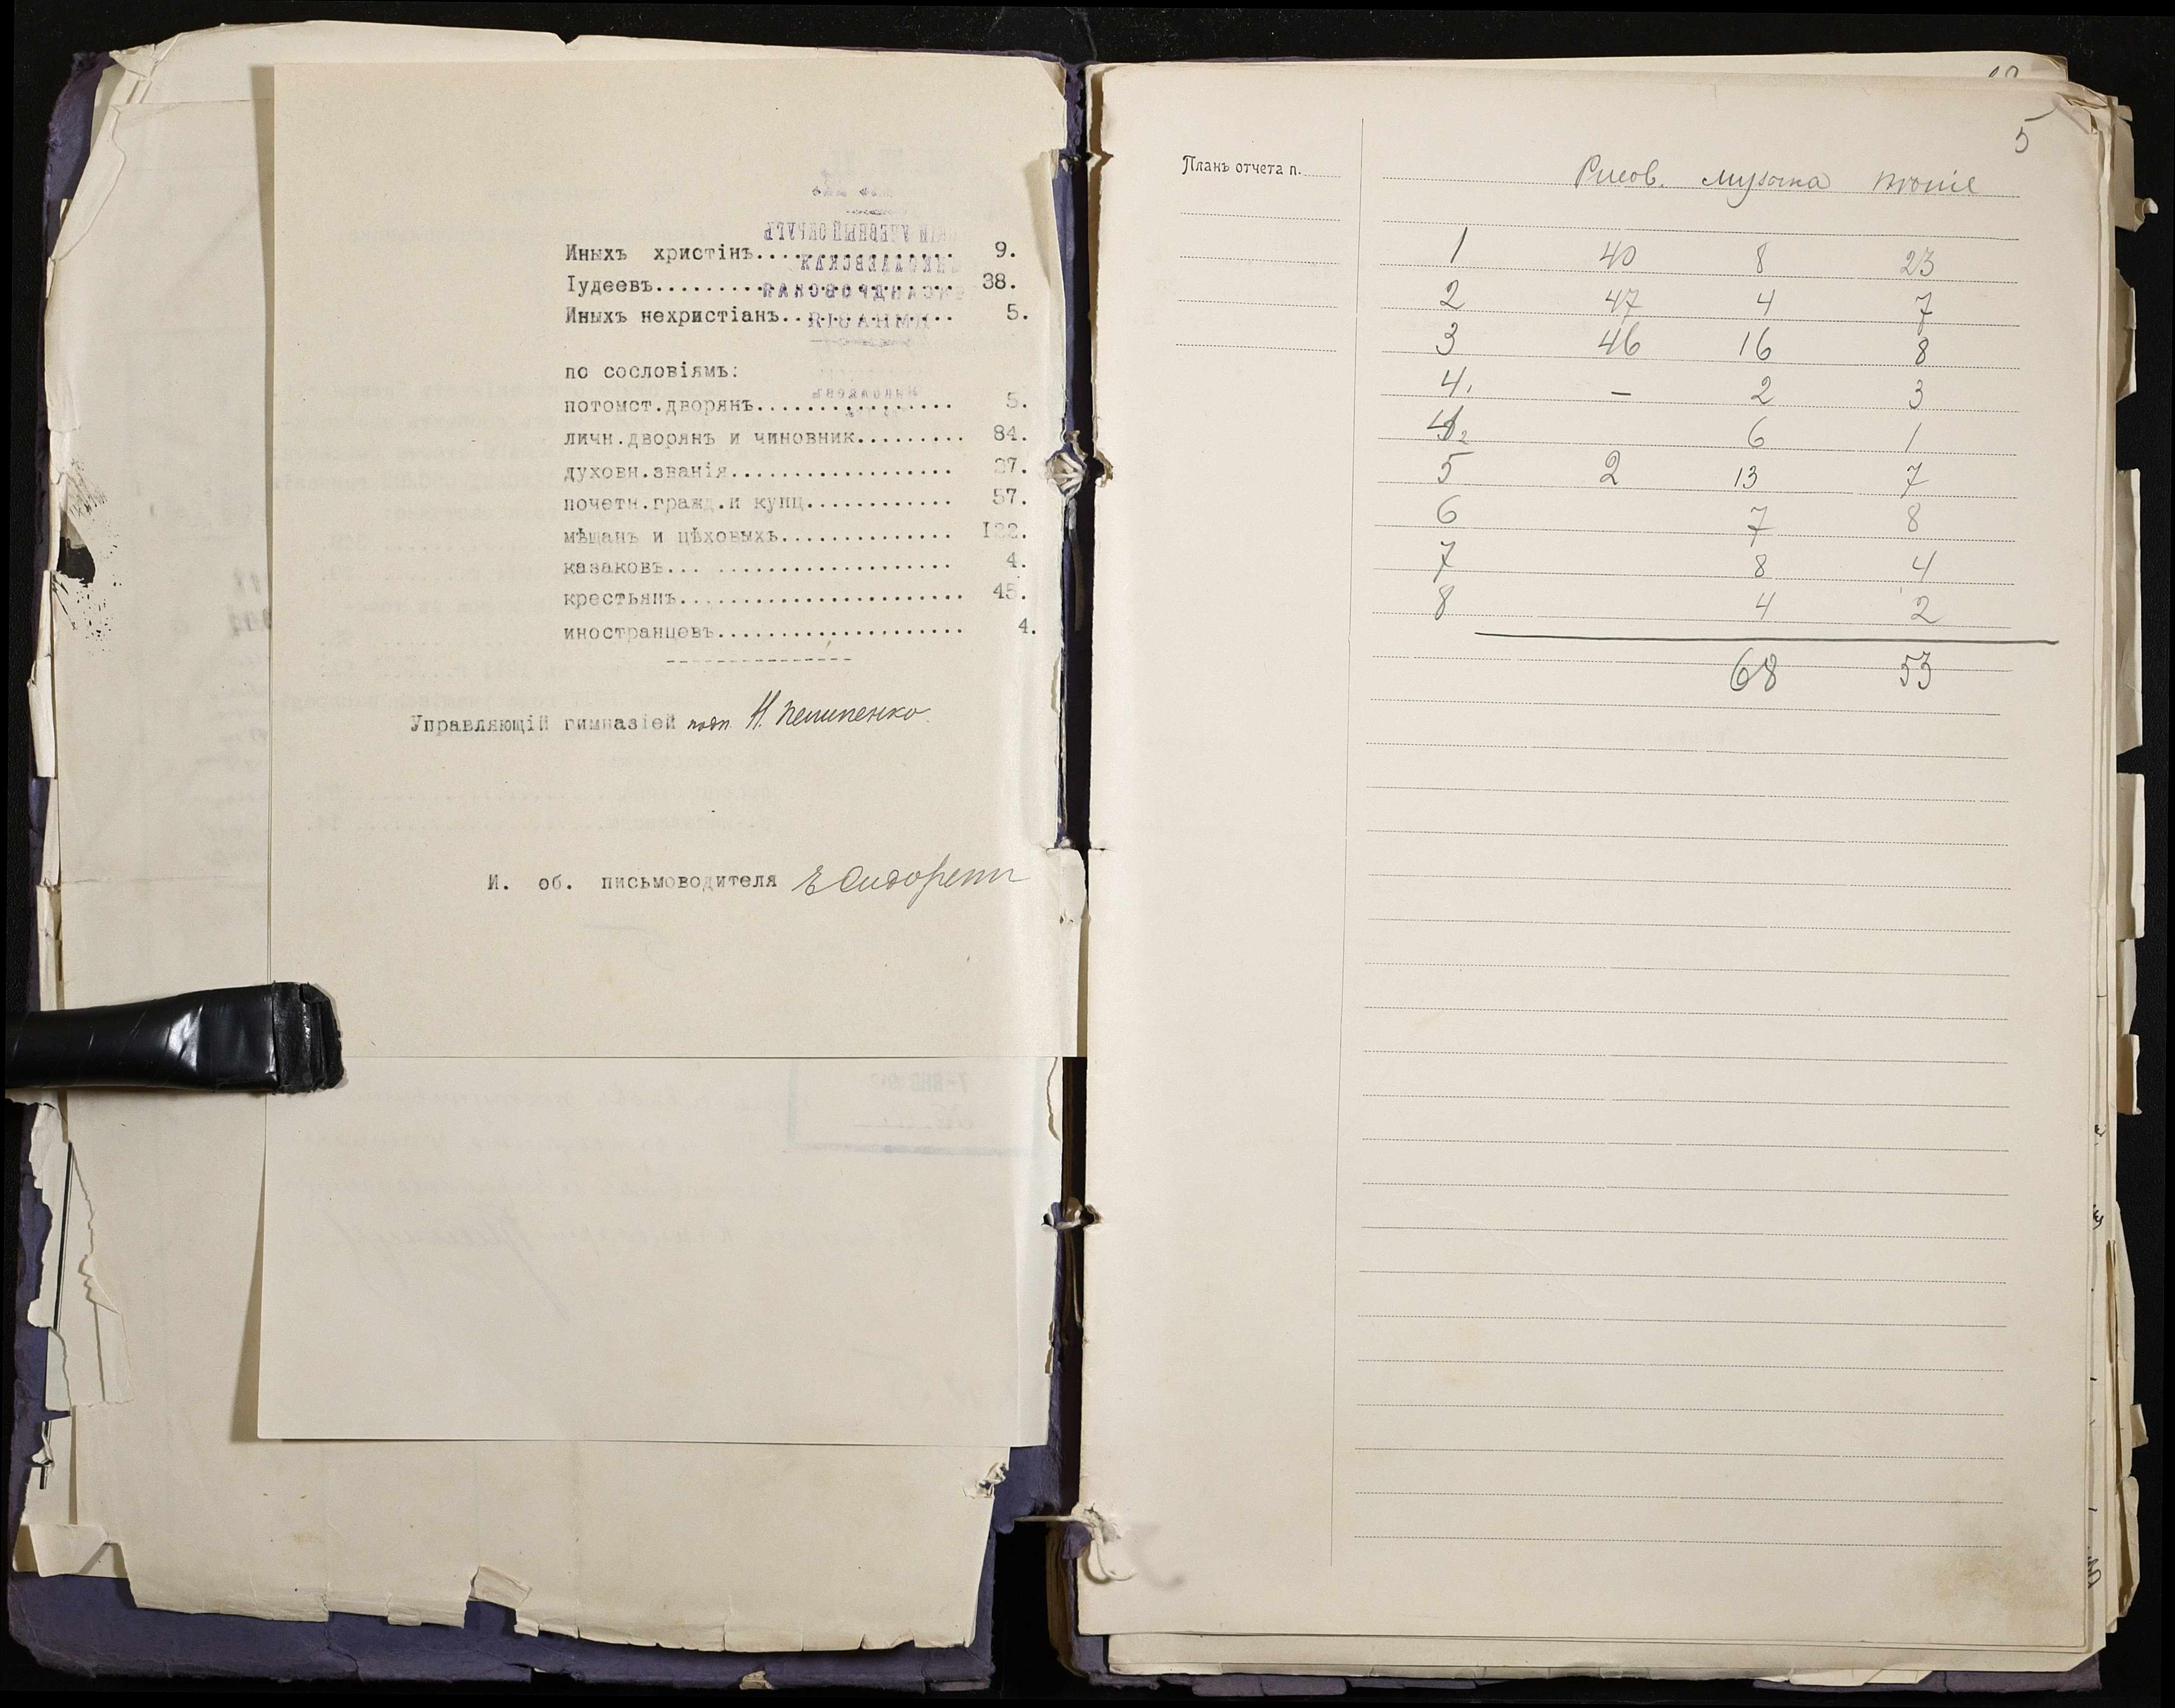 Иныхъ христінъ.................. 9.
Іудеевъ......................... 38.
Иныхъ нехристіанъ............... 5.
по сословіямъ:
потомст.дворянъ................. 5.
личн.дворянъ и чиновник......... 84.
духовн.званія................... 27.
почетн.гражд.и купц............. 57.
мѣщанъ и цѣховыхъ............... I22.
казаковъ... .................... 4.
крестьянъ....................... 45.
иностранцевъ.................... 4.
Управляющій гимназіей подп. Н.
И. об. письмоводителя
5
Планъ отчета п.
Рисов. музыка пѣніе
1 40 8 23
2 47 4 7
3 46 16 8
4, – 2 3
4₂ 6 1
5 2 13 7
6 7 8
7 8 4
8 4 2
68 53